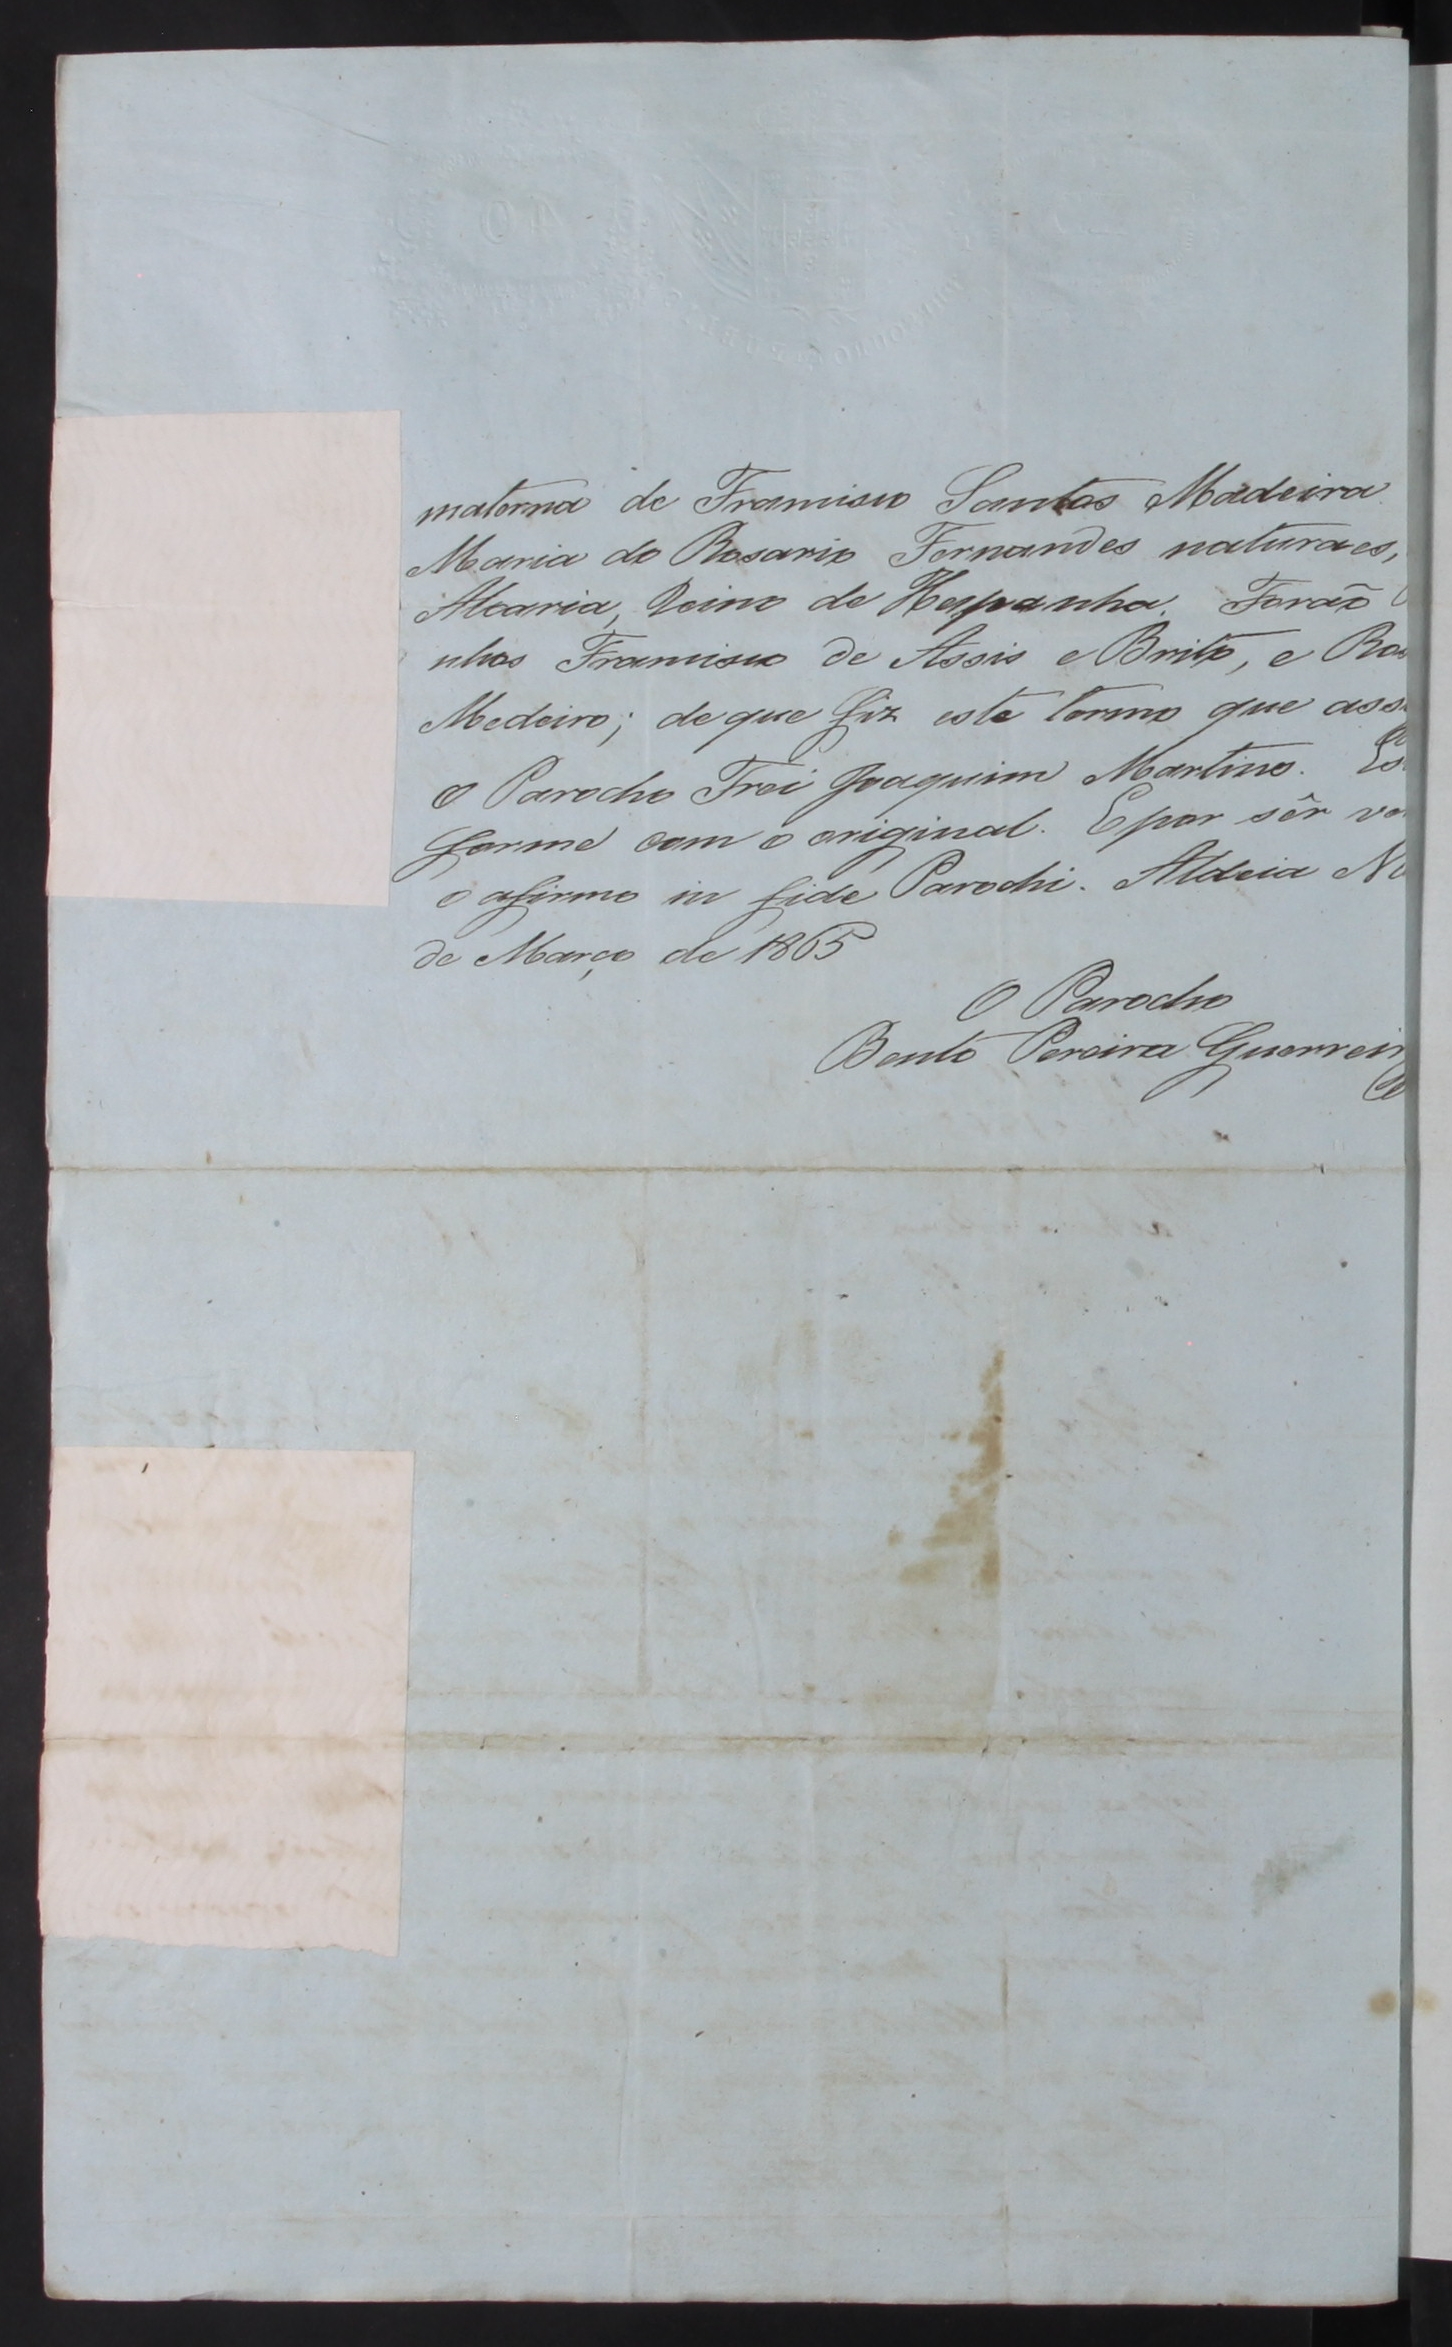 materna de Francisco Santos Madeira
Maria do Rosario Fernandes naturaes,
Alcaria, Reino de Hespanha. Forão
nhas Francisco de Assis e Brito, e Ro
Medeiro; de que fiz este termo que ass
O Parocho Frei Joaquim Martins. Es
forme com o original. E por sêr ve
o afirmo in fide Parochi. Aldeia No
de Março de 1865
O Parocho
Bento Pereira Guerreir